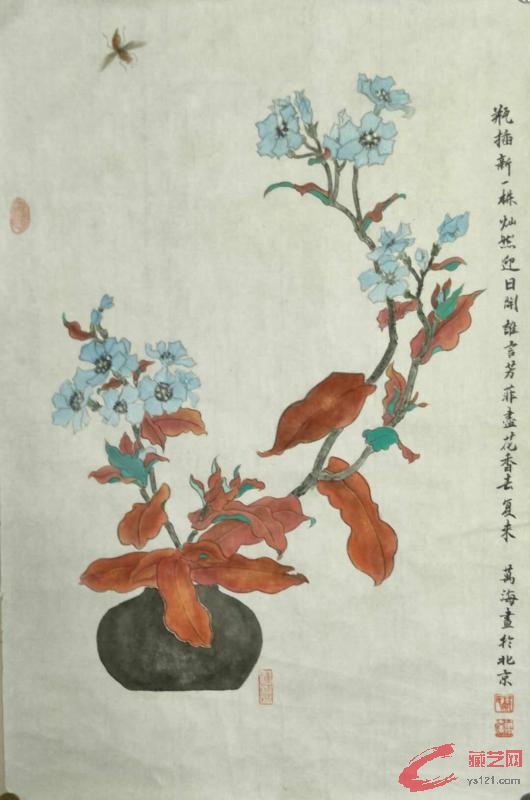 瓶插新一株灿然迎日開誰言芳菲盡花香去复来
萬海畫於北京
藏艺网
ys121.com